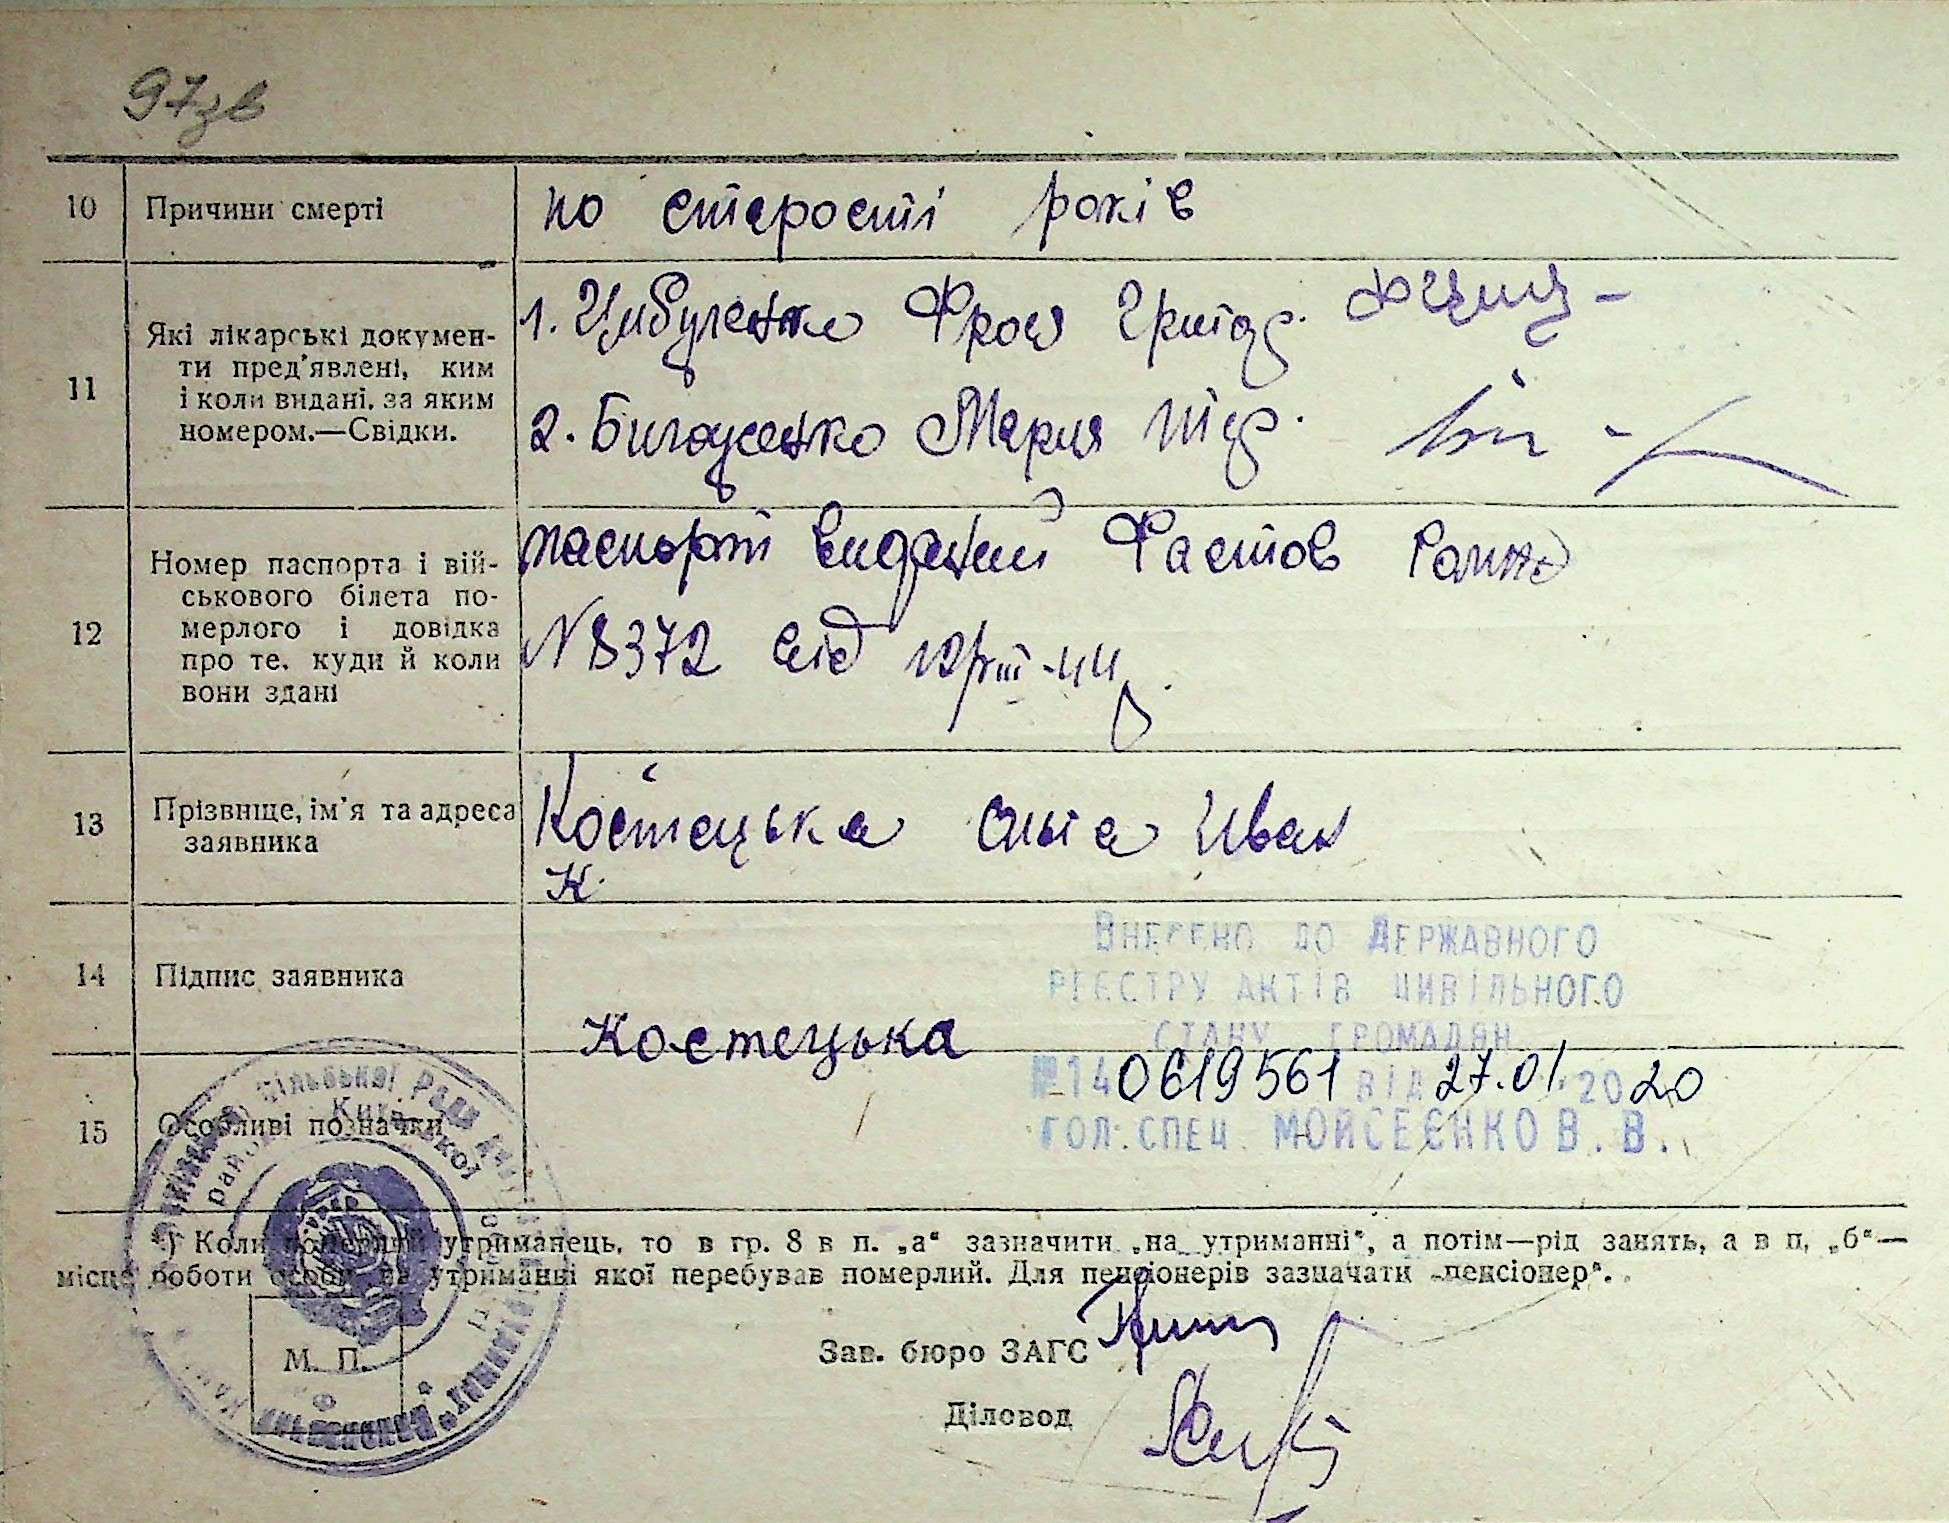 97зв
10 Причини смерті по старості років
11 Які лікарські докумен-
ти пред'явлені, ким
і коли видані, за яким
номером.—Свідки.
1. Цибуленко Фрос Григор.
2. Мария
12 Номер паспорта і вій-
ськового білета по-
мерлого і довідка
про те, куди й коли
вони здані
паспорт виданий Фастов
N 8372 від
13 Прізвище, ім'я та адреса
заявника
Костецька Ольга Иван
К.
14 Підпис заявника
Костецька
Внесено до Державного
реєстру актів цивільного
стану громадян
№140619561 від 27.01.2020
гол. спец. Мойсеєнко В. В.
15 Особливі позначки
*) Коли померлий утриманець, то в гр. 8 в п. „а" зазначити „на утриманні", а потім—рід занять, а в п. „б"—
місце роботи особи, на утриманні якої перебував померлий. Для пенсіонерів зазначати „пенсіонер".
М. П.
Зав. бюро ЗАГС
Діловод